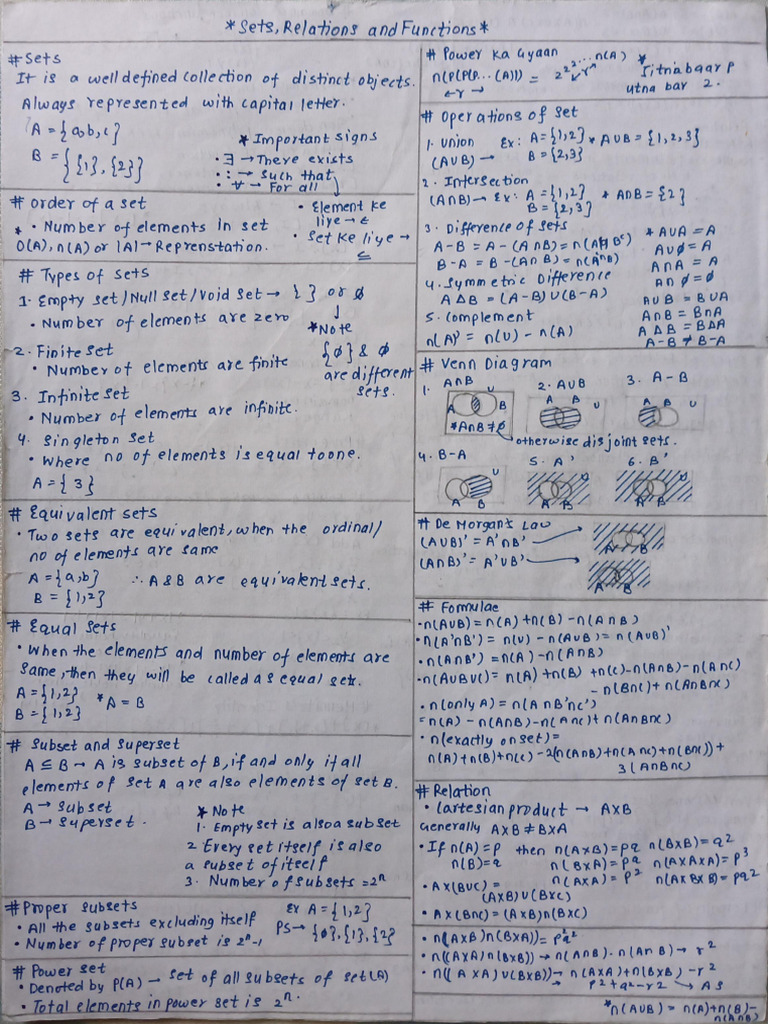 *Sets, Relations and Functions*
# Sets
It is a well defined collection of distinct objects.
Always represented with capital letter.
A = {a,b,c}
B = {{1}, {2}}
* Important signs
• ∃ → There exists
• : → such that
• ∀ → For all
• Element ke liye → ∈
• Set ke liye → ⊆
# Order of a set
* • Number of elements in set
O(A), n(A) or |A| → Reprenstation.
# Types of sets
1. Empty set / Null set / Void set → { } or ∅
• Number of elements are zero
*Note
{∅} & ∅
are different
sets.
2. Finite set
• Number of elements are finite
3. Infinite set
• Number of elements are infinite.
4. Singleton set
• Where no of elements is equal to one.
A = { 3 }
# Equivalent sets
• Two sets are equivalent, when the ordinal/
no of elements are same
A = {a,b}
B = {1,2}
∴ A & B are equivalent sets.
# Equal sets
• When the elements and number of elements are
same, then they will be called as equal sets.
A = {1,2}
B = {1,2}
*A = B
# Subset and superset
A ⊆ B → A is subset of B, if and only if all
elements of set A are also elements of set B.
A → Subset
B → Superset.
* Note
1. Empty set is also a subset
2 Every set itself is also
a subset of itself
3. Number of subsets = 2ⁿ
# Proper subsets
• All the subsets excluding itself
• Number of proper subset is 2ⁿ-1
Ex A = {1,2}
PS → {∅}, {1}, {2}
# Power set
• Denoted by P(A) → set of all subsets of set(A)
• Total elements in power set is 2ⁿ.
# Power ka Gyaan
n(P(P(P... (A))) = 2^2^2^...n(A)
← r →
← r →
* Jitna baar P
utna bar 2.
# Operations of set
1. Union Ex: A = {1,2} * A∪B = {1,2,3}
(A∪B) → B = {2,3}
2. Intersection
(A∩B) → Ex: A = {1,2} * A∩B = {2}
B = {2,3}
3. Difference of Sets
A - B = A - (A∩B) = n(A∩Bᶜ)
B - A = B - (A∩B) = n(Aᶜ∩B)
4. Symmetric Difference
A Δ B = (A-B)∪(B-A)
5. Complement
n(A)' = n(U) - n(A)
* A∪A = A
A∪∅ = A
A∩A = A
A∩∅ = ∅
A∪B = B∪A
A∩B = B∩A
A Δ B = BΔA
A-B ≠ B-A
# Venn Diagram
1. A∩B 2. A∪B 3. A - B
U
A B
*A∩B ≠ ∅
A B U
A B U
otherwise disjoint sets.
4. B-A 5. A' 6. B'
U
A B
U
A B
U
A B
# De Morgan's Law
(A∪B)' = A'∩B'
(A∩B)' = A'∪B'
A B
A B
# Formulae
• n(A∪B) = n(A) + n(B) - n(A∩B)
• n(A'∩B') = n(U) - n(A∪B) = n(A∪B)'
• n(A∩B') = n(A) - n(A∩B)
• n(A∪B∪C) = n(A) + n(B) + n(C) - n(A∩B) - n(A∩C)
- n(B∩C) + n(A∩B∩C)
• n(only A) = n(A∩B'∩C')
= n(A) - n(A∩B) - n(A∩C) + n(A∩B∩C)
• n(exactly on set) =
n(A) + n(B) + n(C) - 2(n(A∩B) + n(A∩C) + n(B∩C)) +
3(A∩B∩C)
# Relation
• Cartesian product → A×B
Generally A×B ≠ B×A
• If n(A) = p then n(A×B) = pq n(B×B) = q²
n(B) = q n(B×A) = pq n(A×A×A) = p³
n(A×A) = p² n(A×B×B) = pq²
• A×(B∪C) =
(A×B)∪(B×C)
• A×(B∩C) = (A×B)∩(B×C)
• n(A×B)∩(B×A)) = p²q²
• n((A×A)∩(B×B)) → n(A∩B). n(A∩B) → r²
• n((A×A)∪(B×B)) → n(A×A) + n(B×B) - r²
→ p² + q² - r² → AS
*n(A∪B) = n(A) + n(B) -
n(A∩B)